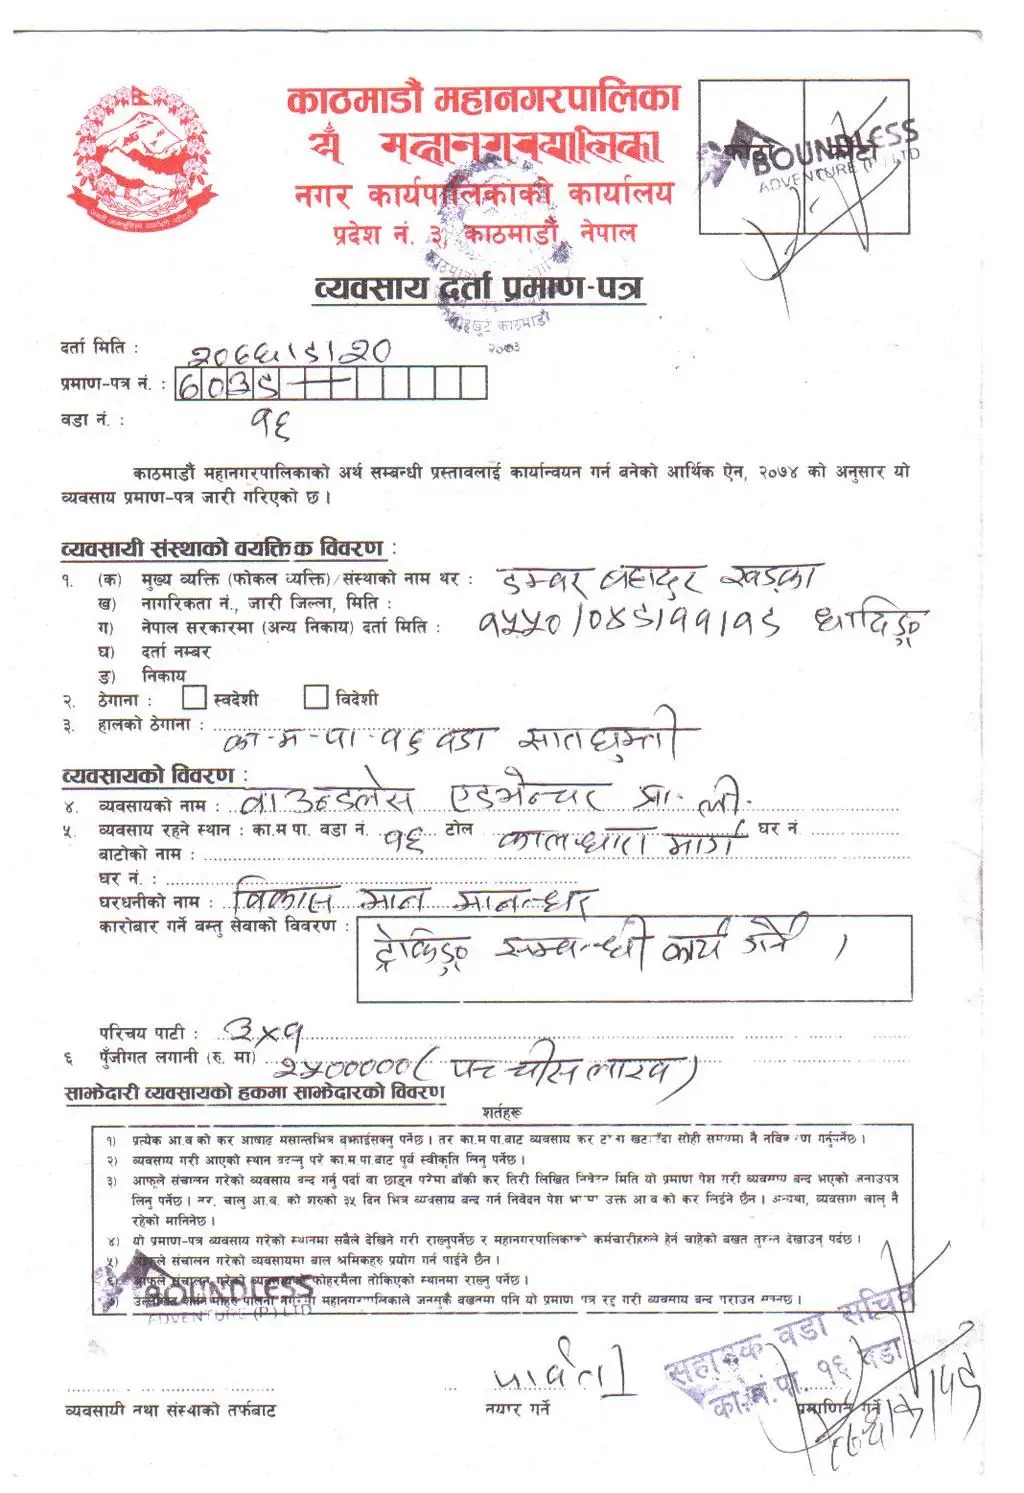 काठमाडौं महानगरपालिका
नगर कार्यपालिकाको कार्यालय
प्रदेश नं. ३, काठमाडौं, नेपाल
व्यवसाय दर्ता प्रमाण-पत्र
फोटो फोटो
BOUNDLESS
ADVENTURE (P) LTD
काठमाडौं
२०७३
दर्ता मिति :
प्रमाण-पत्र नं. : ६०३८
वडा नं. : १६
काठमाडौं महानगरपालिकाको अर्थ सम्बन्धी प्रस्तावलाई कार्यान्वयन गर्न बनेको आर्थिक ऐन, २०७४ को अनुसार यो
व्यवसाय प्रमाण-पत्र जारी गरिएको छ ।
व्यवसायी संस्थाको वयक्तिक विवरण :
१. (क) मुख्य व्यक्ति (फोकल व्यक्ति)/संस्थाको नाम थर : डम्बर बहादुर खड्का
ख) नागरिकता नं., जारी जिल्ला, मिति :
ग) नेपाल सरकारमा (अन्य निकाय) दर्ता मिति : १५५०/०४८/११/१८ धादिङ्ग
घ) दर्ता नम्बर
ङ) निकाय
२. ठेगाना : स्वदेशी विदेशी
३. हालको ठेगाना : का-म-पा-१६ वडा सातघुम्ती
व्यवसायको विवरण :
४. व्यवसायको नाम : वाउन्डलेस एडभेन्चर प्रा. ली.
५. व्यवसाय रहने स्थान : का.म पा. वडा नं. १६ टोल मार्ग घर नं
बाटोको नाम :
घर नं. :
घरधनीको नाम : विकास मान मानन्धर
कारोबार गर्ने वस्तु सेवाको विवरण : ट्रेकिङ्ग सम्बन्धी कार्य गर्ने ।
परिचय पाटी : ३x१
६ पुँजीगत लगानी (रु. मा) २५००००० (पच्चीस लाख)
साझेदारी व्यवसायको हकमा साझेदारको विवरण
शर्तहरू
१) प्रत्येक आ.व को कर आषाढ मसान्तभित्र बुझाईसक्नु पर्नेछ । तर का.म पा.बाट व्यवसाय कर सोही समयमा नै गर्नुपर्नेछ ।
२) व्यवसाय गरी आएको स्थान परे का.म पा.बाट पुर्व स्वीकृति लिनु पर्नेछ ।
३) आफूले संचालन गरेको व्यवसाय बन्द गर्नु पर्दा वा छाड्न परेमा बाँकी कर तिरी लिखित निवेदन मिति यो प्रमाण पेश गरी व्यवसाय बन्द भएको जनाउपत्र
लिनु पर्नेछ । तर, चालु आ.व. को शुरुको ३५ दिन भित्र व्यवसाय बन्द गर्न निवेदन पेश उक्त आ व को कर लिईने छैन । अन्यथा, व्यवसाय चालु नै
रहेको मानिनेछ ।
४) यो प्रमाण-पत्र व्यवसाय गरेको स्थानमा सबैले देखिने गरी राख्नुपर्नेछ र महानगरपालिकाको कर्मचारीहरुले हेर्न चाहेको बखत तुरुन्त देखाउन पर्दछ ।
५) आफूले संचालन गरेको व्यवसायमा बाल श्रमिकहरु प्रयोग गर्न पाईने छैन ।
६) आफूले संचालन गरेको व्यवसायको फोहरमैला तोकिएको स्थानमा राख्नु पर्नेछ ।
७) पालना महानगरपालिकाले जुनसुकै बखतमा पनि यो प्रमाण पत्र रद्द गरी व्यवसाय बन्द गराउन सक्नेछ ।
BOUNDLESS
ADVENTURE (P) LTD
सहायक वडा सचिव
का.मं.पा. १६ वडा
पार्वती
व्यवसायी तथा संस्थाको तर्फबाट तयार गर्ने प्रमाणित गर्ने